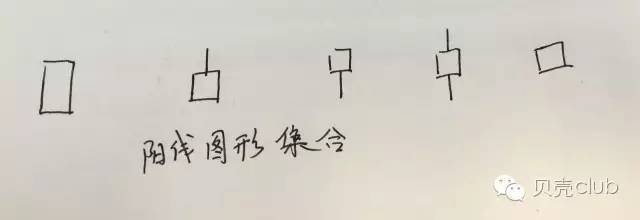 阳线图形集合
贝壳club